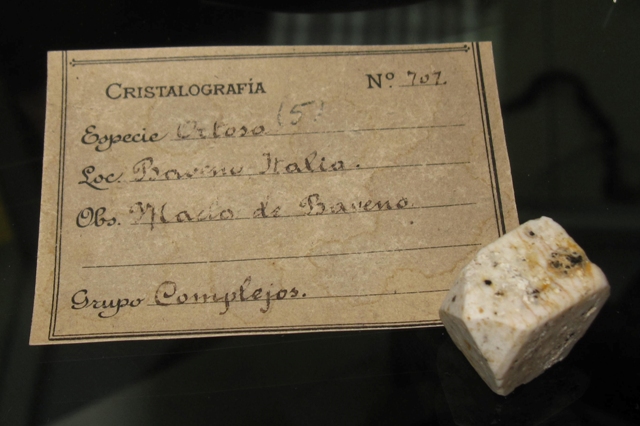 CRISTALOGRAFÍA Nº 707.
Especie Ortosa (5)
Loc. Baveno Italia.
Obs. Macla de Baveno
Grupo Complejos.